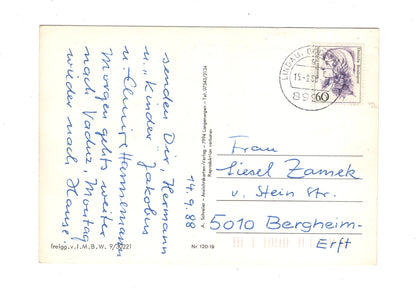 senden Dir, Hermann
u. "Kinder" Jakobus
u. Hannemann
Morgen gehts weiter
nach Vaduz, Montag
wieder nach Hause.
14.9.88
freigg. v. I.M.B.W. 9/
A. Schreier - Ansichtskarten-Verlag - 7994 Langenargen - Tel. 07543/2134
Reproduktion verboten
Nr 120-19
LINDAU
899
60
Frau
Liesel Zamek
v. Stein Str.
5010 Bergheim-
Erft